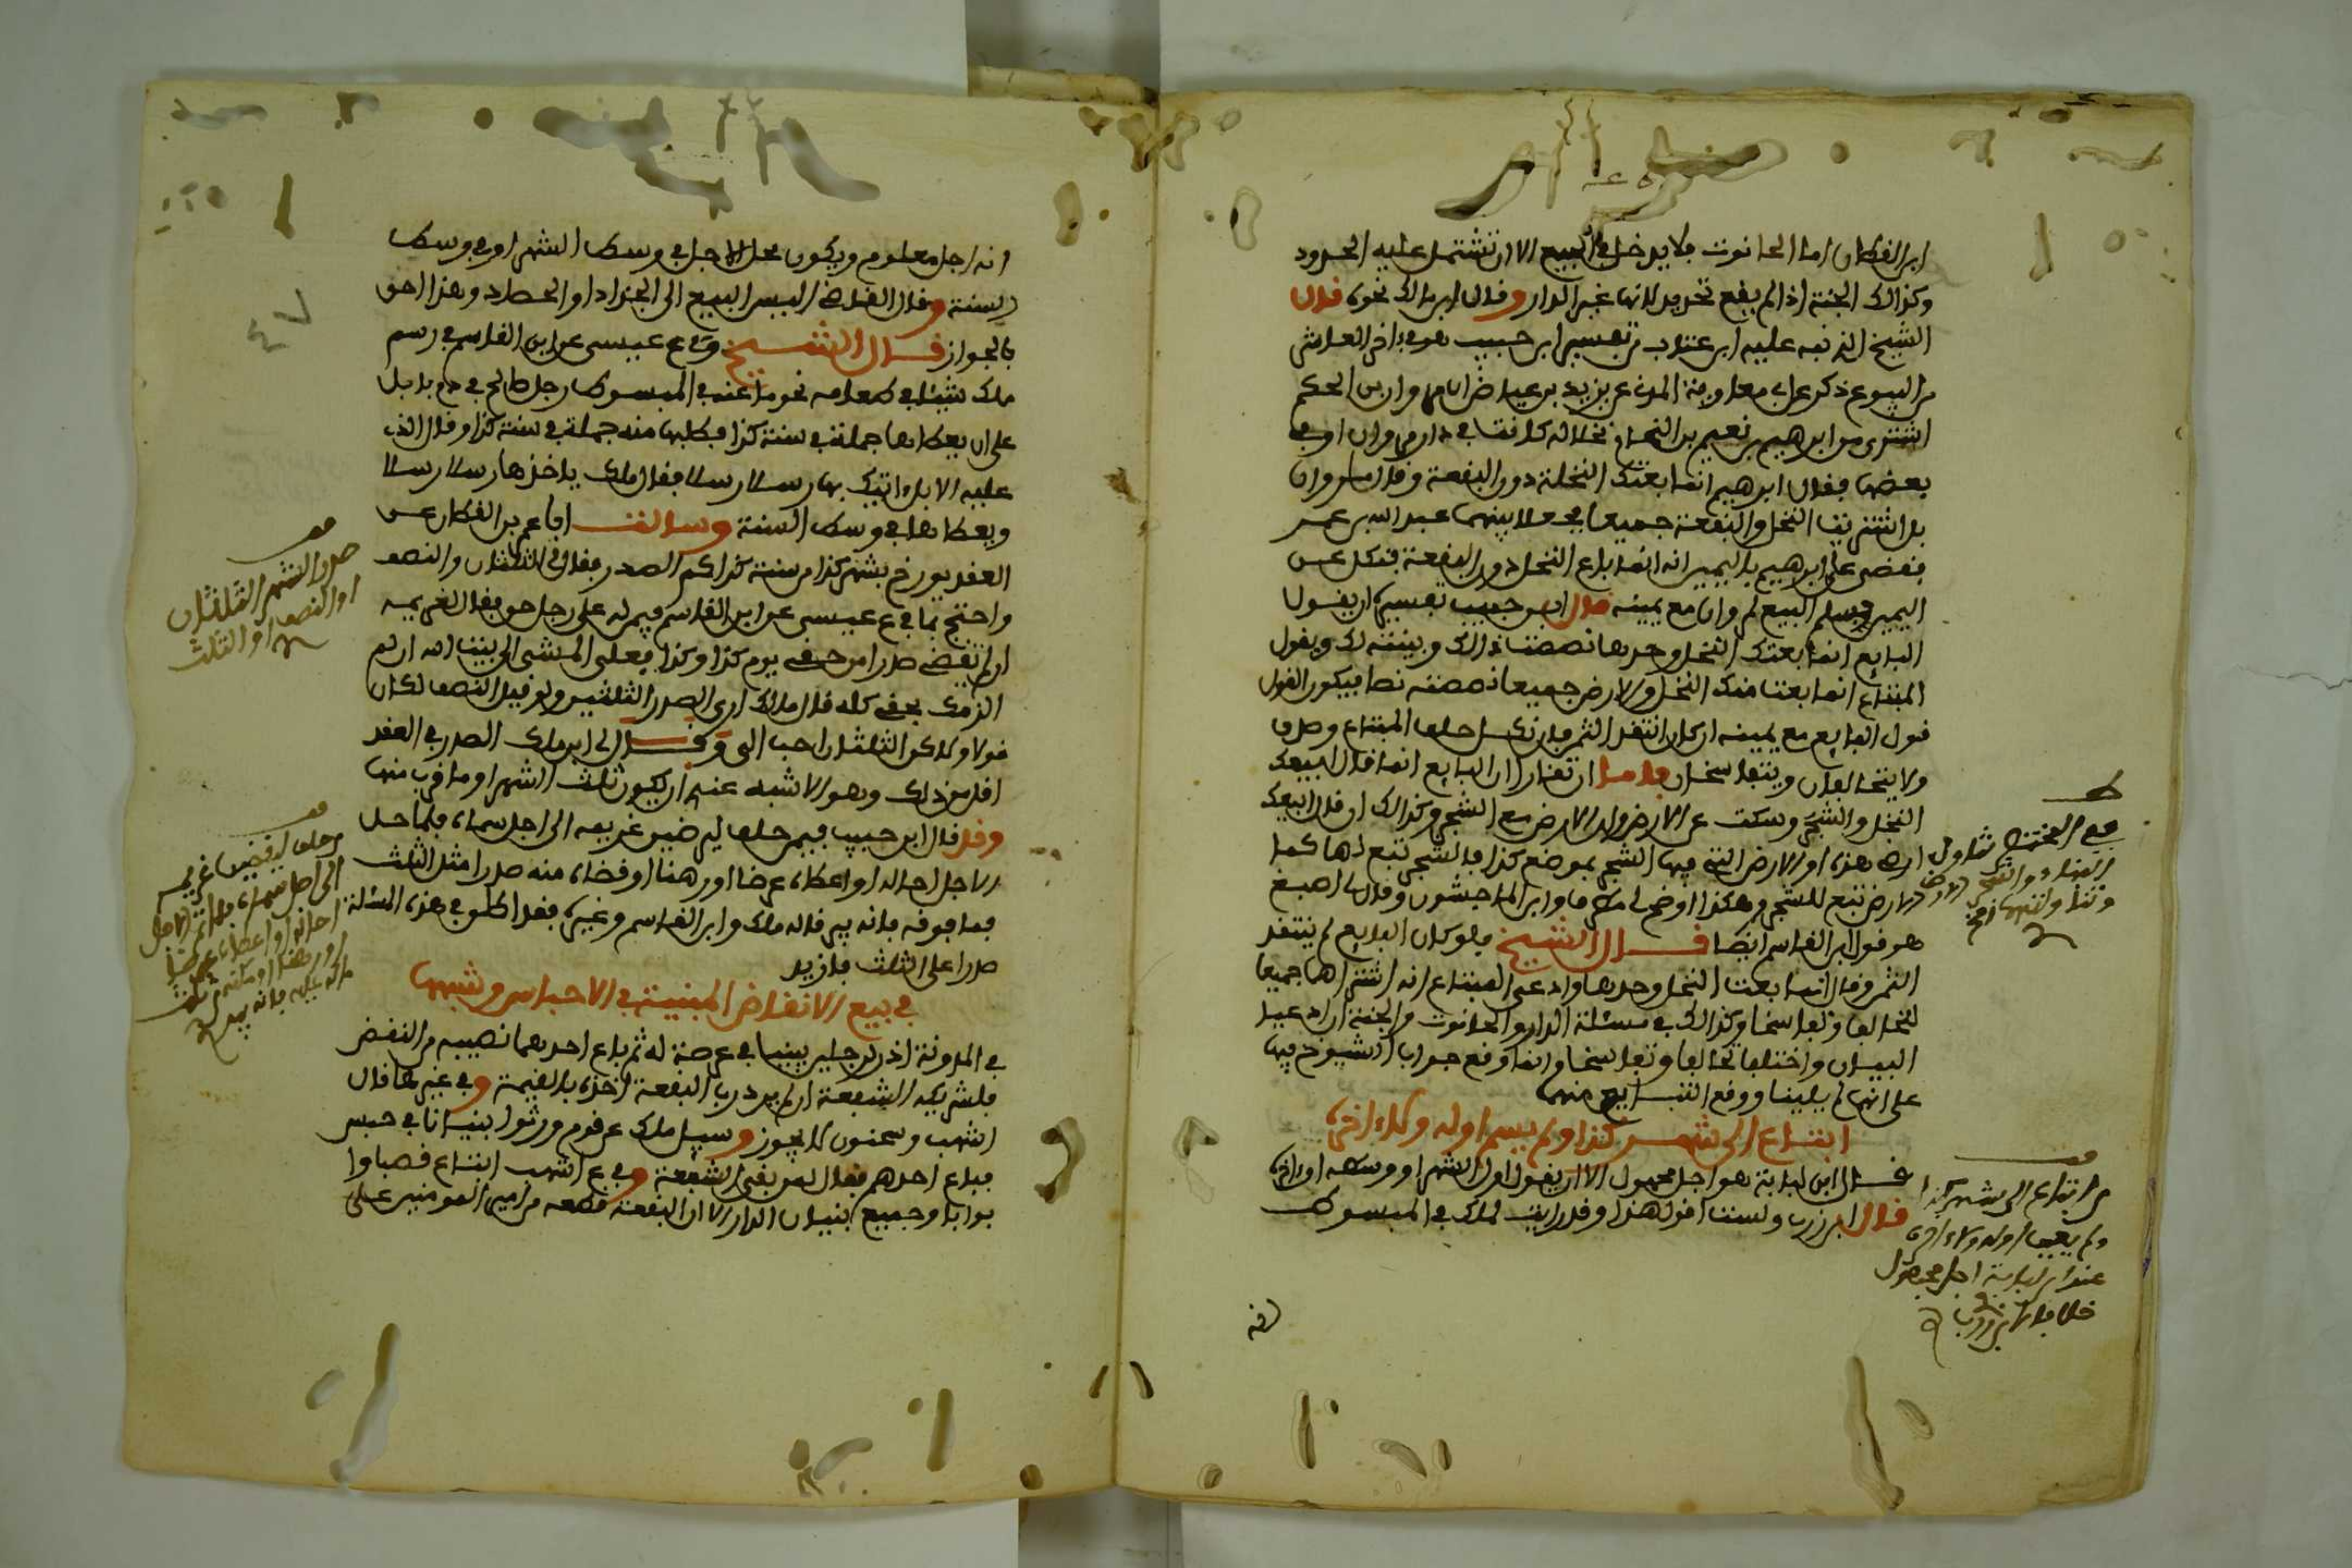 ابن القطان اما الحانوت فلا يدخل في البيع الا ان تشتمل عليه الحدود
وكذالك الجنة اذا لم يقع تحديد لانها غير الدار وقال ابن مالك نحوه قال
الشيخ الذي نبه عليه ابن عتاب من تفسير ابن حبيب هو في اخر العاشر
من البيوع ذكر عن معاوية عن يزيد بن عياض ان مروان بن الحكم
اشترى من ابراهيم بن نعيم بن النحام نخلا له كانت في دار مروان او في
بعضها فقال ابراهيم انما بعتك النخلة دون البقعة وقال مروان
بل اشتريت النخل والبقعة جميعا فجعلا بينهما عبد الله بن عمر
فقضى على ابراهيم باليمين انه انما باع النخل دون البقعة فنكل عن
اليمين وسلم البيع لمروان مع يمينه قال ابن حبيب تفسيره ان يقول
البايع انما بعتك النخل وحدها نصصت ذالك وبينته لك ويقول
المبتاع انما بعت منى النخل والارض جميعا نصصته نصا فيكون القول
قول البايع مع يمينه ان كان انتقد الثمن فان نكل حلف المبتاع وصدق
ولا يتحالفان ويتفاسخان فاما ان تقارا ان البايع انما قال ابيعك
النخل والشجر وسكت عن الارض فان الارض مع الشجر وكذالك ان قال ابيعك
ارضي هذه او الارض التي فيها الشجر بموضع كذا فالشجر تبع لها كما
الارض تبع للشجر وهكذا اوضح لي مطرف وابن الماجشون وقال اصبغ
هو قول ابن القاسم ايضا قال الشيخ فلو كان البايع لم ينتقد
الثمن وقال انما بعت النخل وحدها وادعى المبتاع انه اشتراها جميعا
لتحالفا وتفاسخا وكذالك في مسئلة الدار والحانوت والجنة ان ادعيا
البيان واختلفا تحالفا وتفاسخا وانما وقع جواب الشيوخ فيها
على انهما لم يبينا ووقع التبايع منهما
ابتاع الى شهر كذا ولم يسم اوله ولا اخره
قال ابن لبابة هو اجل مجهول الا ان يقول اول الشهر او وسطه او اخره
قال ابن زرب ولست اقول هذا وقد رايت لمالك في المبسوط
من ابتاع الى شهر كذا
ولم يعين اوله ولا اخره
عند ابن لبابة اجل مجهول
خلافا لابن زرب
انه
انه اجل معلوم ويكون محل الاجل في وسط الشهر او في وسط
السنة وقال القاضي اليس البيع الى الجذاذ او الحصاد وهذا احق
بالجواز قال الشيخ وفي سماع عيسى عن ابن القاسم في رسم
ملك شيئا في طعامه نحو ما عنه في المبسوط رجل صالح في دم بابل
على ان يعطاها جملة في سنة كذا فطلبها منه جملة في سنة كذا وقال الذي
عليه الابل اتيك بها رسلا رسلا فقال ملك ياخذها رسلا رسلا
ويعطاها في وسط السنة وسالت ابا عمر بن القطان عن
العقد يورخ بشهر كذا من سنة كذا كم الصدر فقال لي الثلثان والنصف
واحتج بما في سماع عيسى عن ابن القاسم فيمن له على رجل حق فقال لغريمه
ان لم تقض صدرا من حقي يوم كذا وكذا فعلي المشي الى بيت الله ان لم
الزمك بحقي كله قال مالك ارى الصدر الثلثين ولو قيل النصف لكان
قولا ولاكن الثلثان احب الي وقال لي ابن مالك الصدر في العقد
اقل من ذلك وهو الاشبه عندي ان يكون ثلث الشهر او ما قرب منها
وقد قال ابن حبيب فيمن حلف ليرضين غريمه الى اجل سماه فلما حل
الاجل احاله او اعطاه عرضا او رهنا او قضاه منه صدرا مثل الثلث
فما فوقه فانه يبر قاله ملك وابن القاسم وغيره فقد اطلق في هذه المسئلة
صدرا على الثلث فازيد
في بيع الانقاض المبنية في الاحباس وشبهها
في المدونة اذن لرجلين يبنيا في عرصة له ثم باع احدهما نصيبه من النقض
فلشريكه الشفعة ان لم يرد رب البقعة اخذه بالقيمة وفي غيرها قال
اشهب وسحنون لا يجوز وسيل ملك عن قوم ورثوا بنيانا في حبس
فباع احدهم فقال لمن بقي الشفعة وفي سماع اشهب ابتاع قصابا او
بوابا وجميع بنيان الدار الا ان البقعة قطعه من امير المومنين على
صدر الشهر الثلثان
او النصف او الثلث
من حلف ليقضين غريمه
الى اجل سماه فلما تم الاجل
احاله او اعطاه عرضا